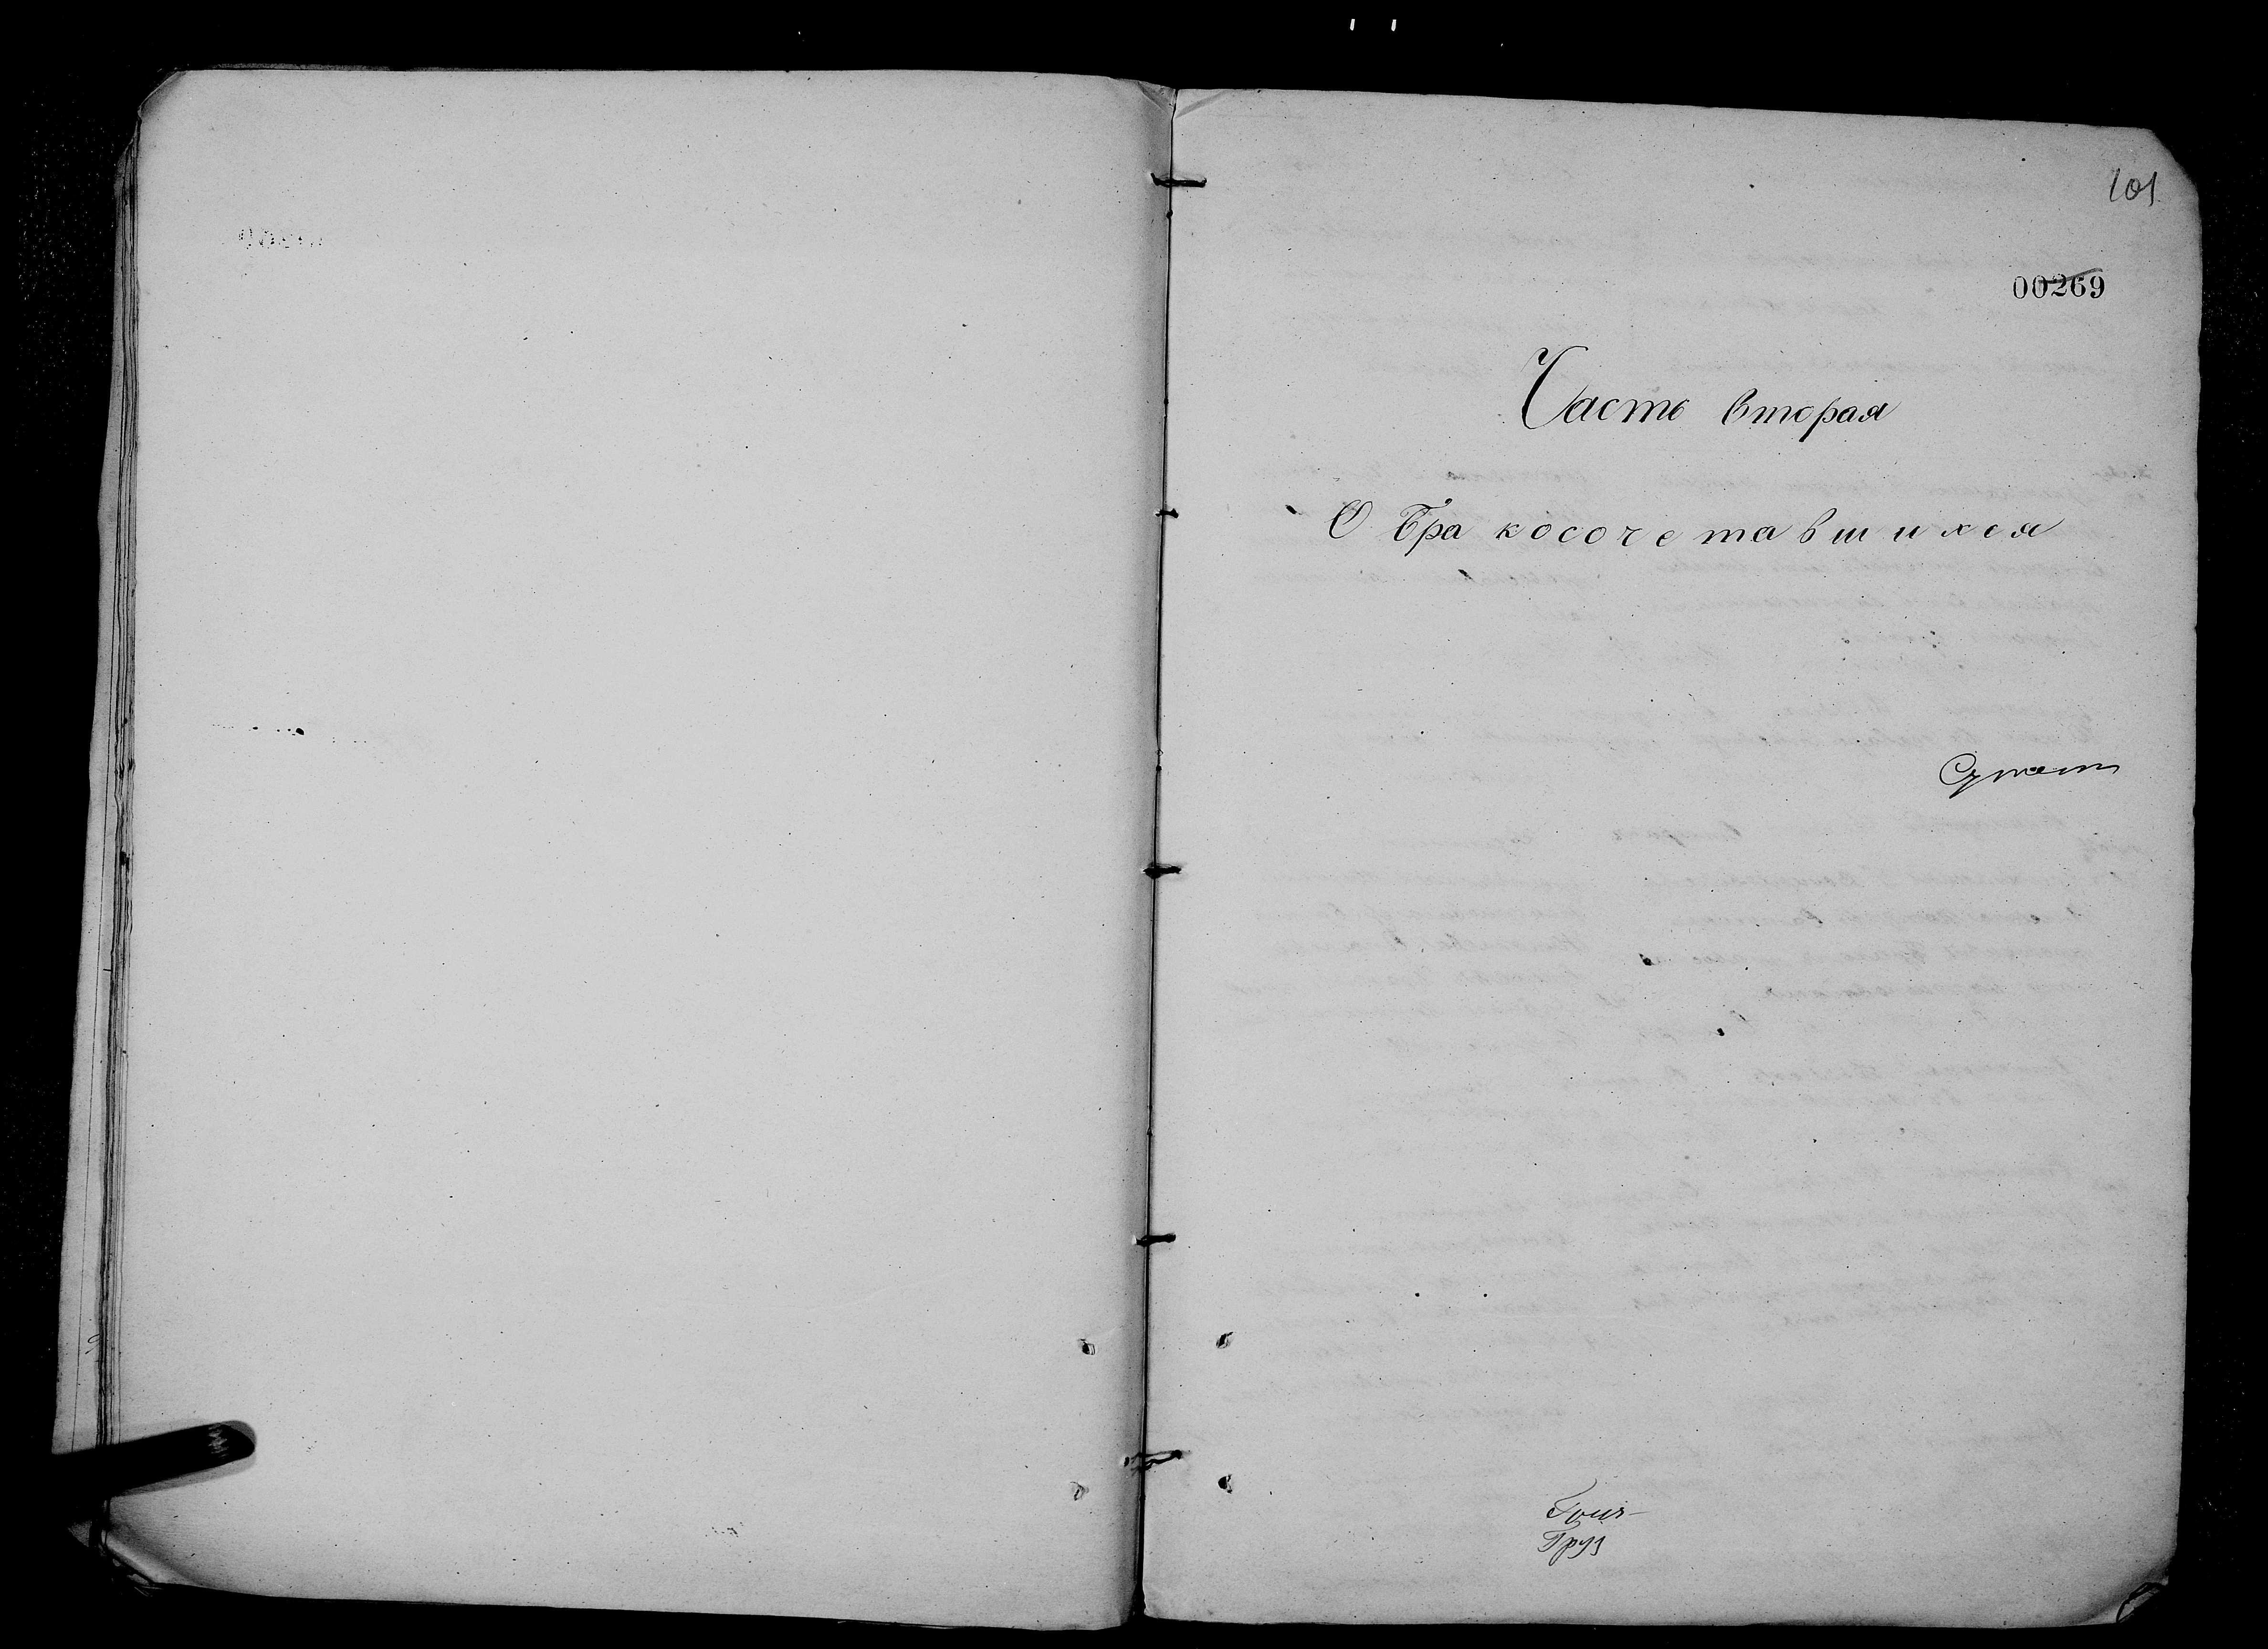 101
00269
Часть вторая
О Бракосочетавшихся